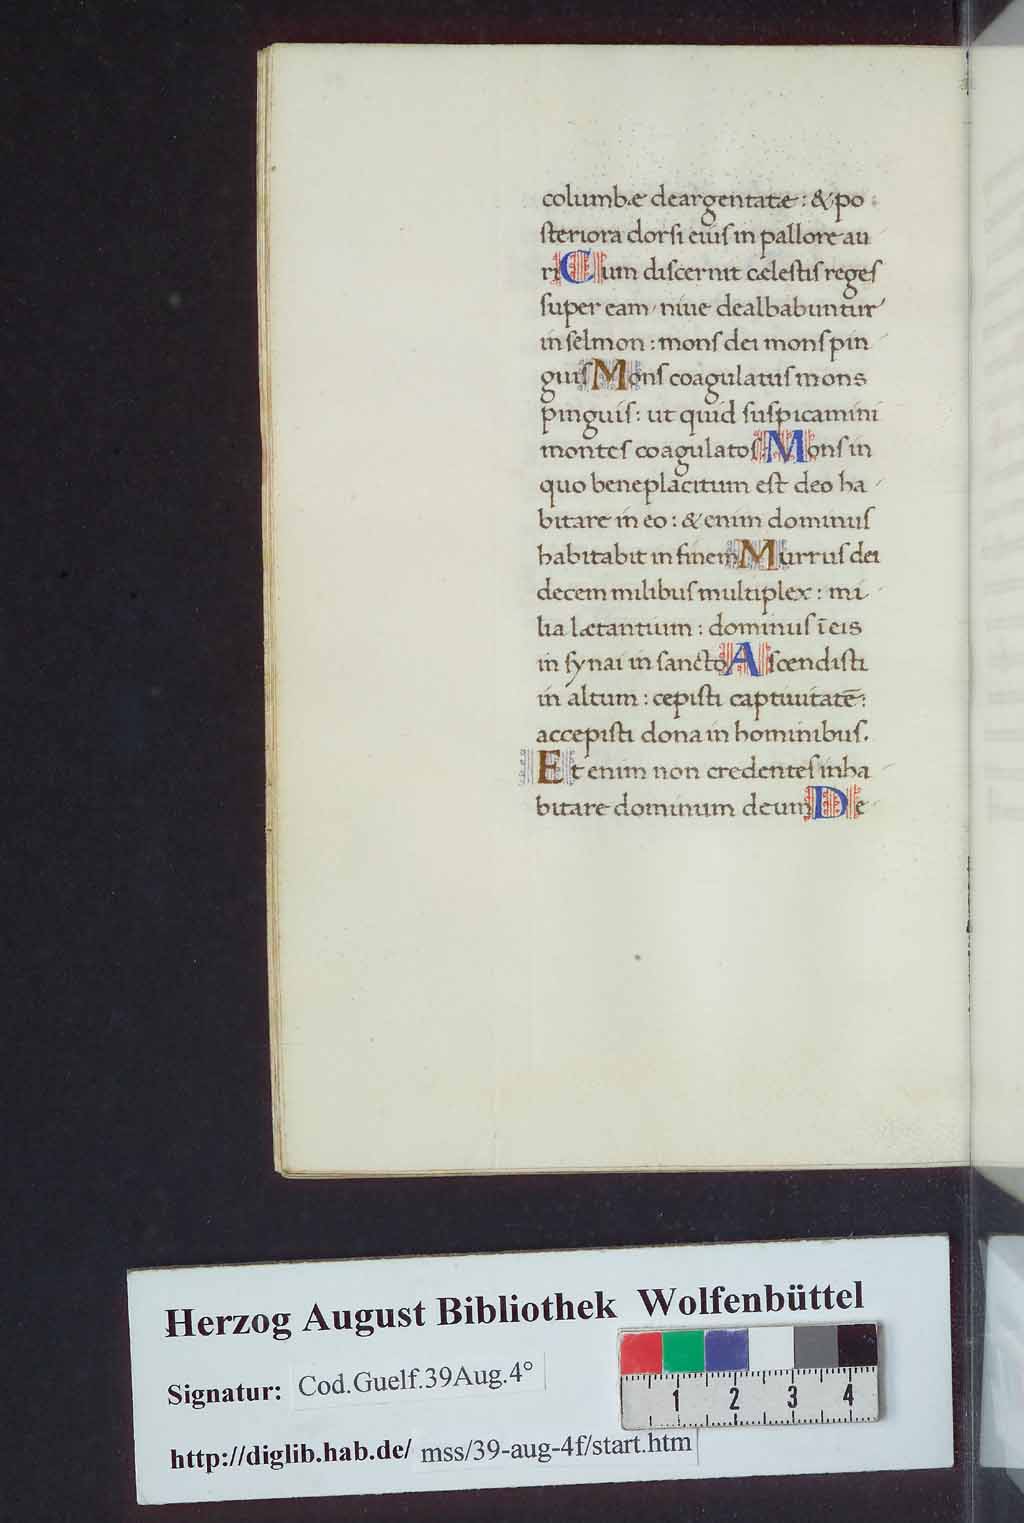 columbæ deargentatæ : & po
steriora dorsi eius in pallore au
ri Cum discernit cælestis reges
super eam, niue dealbabuntur
in selmon : mons dei mons pin
guis Mons coagulatus mons
pinguis : ut quid suspicamini
montes coagulatos Mons in
quo beneplacitum est deo ha
bitare in eo : & enim dominus
habitabit in finem Murrus dei
decem milibus multiplex : mi
lia lætantium : dominus ī eis
in synai in sancto Ascendisti
in altum : cepisti captiuitatē :
accepisti dona in hominibus.
Et enim non credentes inha
bitare dominum deum De
Herzog August Bibliothek Wolfenbüttel
Signatur: Cod.Guelf.39Aug.4°
http://diglib.hab.de/ mss/39-aug-4f/start.htm
1 2 3 4